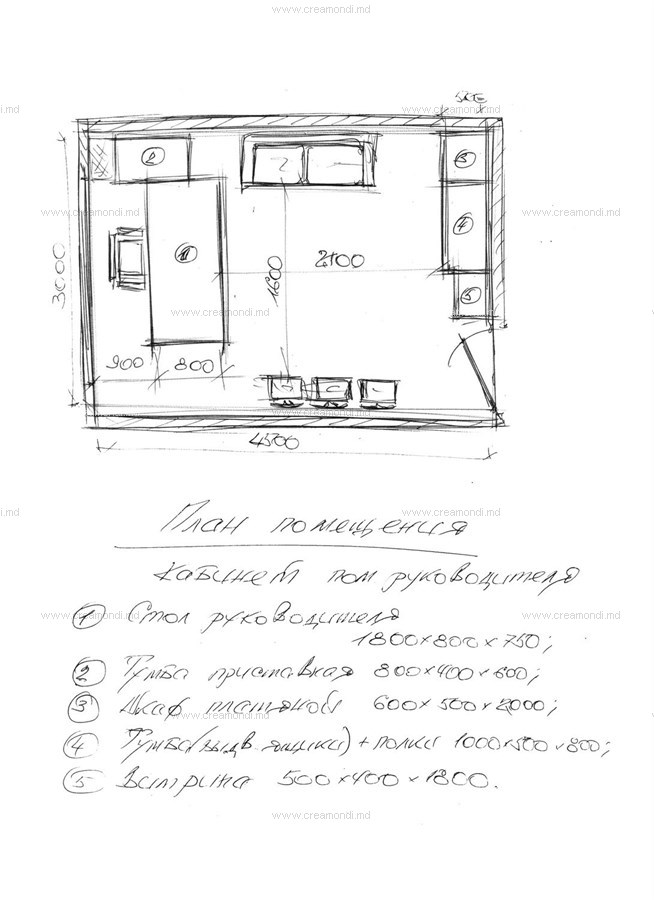 www.creamondi.md
500
3
2
4
1
5
3000
1600
2100
900
800
4500
План помещения
Кабинет пом руководителя
1 Стол руководителя
1800×800×750;
2 Тумба приставная 800×400×600;
3 Шкаф платяной 600×500×2000;
4 Тумба (выдв ящики) + полки 1000×500×800;
5 Витрина 500×400×1800.
www.creamondi.md